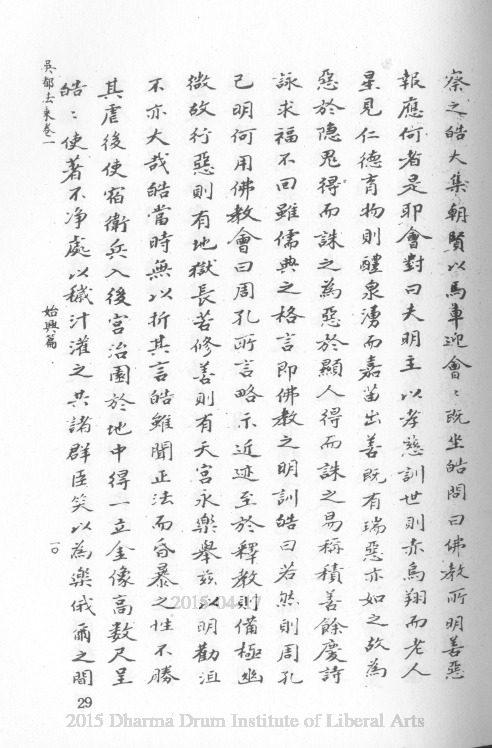 察之皓大集朝賢以馬車迎會〻既坐皓問曰佛教所明善惡
報應何者是耶會對曰夫明主以孝慈訓世則赤烏翔而老人
星見仁德育物則醴泉湧而嘉苗出善既有瑞惡亦如之故為
惡於隐鬼得而誅之為惡於顯人得而誅之易稱積善餘慶詩
詠求福不回雖儒典之格言即佛教之明訓皓曰若然則周孔
已明何用佛教會曰周孔所言略示近迹至於釋教則備極幽
微故行惡則有地獄長苦修善則有天宮永樂舉兹以明勸沮
不亦大哉皓當時無以折其言皓雖聞正法而昏暴之性不勝
其虐後使宿衛兵入後宮治園於地中得一立金像高数尺呈
皓〻使著不净處以穢汁灌之共諸群臣笑以為樂俄爾之間
吳都法乘卷一
始興篇
一〇
29
2015/04/17
2015 Dharma Drum Institute of Liberal Arts